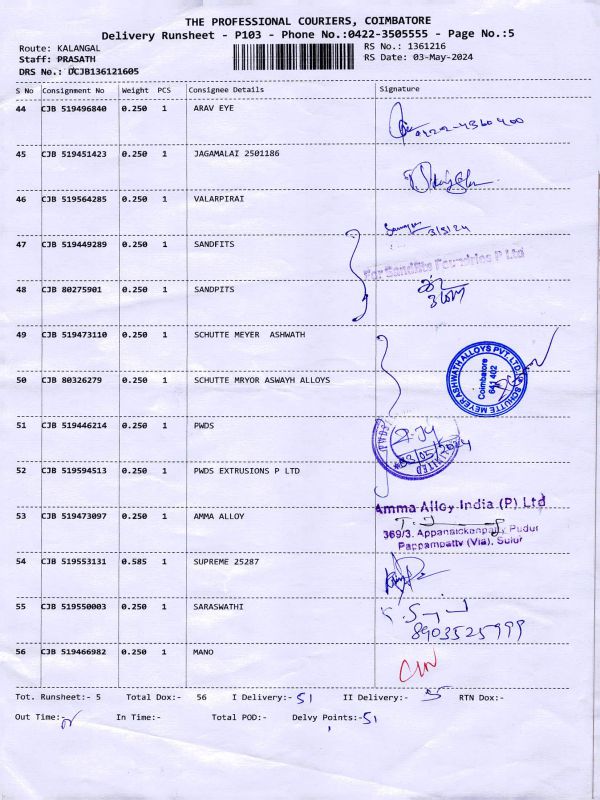 THE PROFESSIONAL COURIERS, COIMBATORE
Delivery Runsheet - P103 - Phone No.:0422-3505555 - Page No.:5
Route: KALANGAL
RS No.: 1361216
Staff: PRASATH
RS Date: 03-May-2024
DRS No.: DCJB136121605
S No Consignment No Weight PCS Consignee Details Signature
44 CJB 519496840 0.250 1 ARAV EYE
0422-4360400
45 CJB 519451423 0.250 1 JAGAMALAI 2501186
46 CJB 519564285 0.250 1 VALARPIRAI
3/5/24
47 CJB 519449289 0.250 1 SANDFITS
For Sandfits Foundries P Ltd
48 CJB 80275901 0.250 1 SANDPITS
49 CJB 519473110 0.250 1 SCHUTTE MEYER ASHWATH
SCHUTTE MEYER ASHWATH ALLOYS PVT. LTD.
Coimbatore
641 402
50 CJB 80326279 0.250 1 SCHUTTE MRYOR ASWAYH ALLOYS
51 CJB 519446214 0.250 1 PWDS
03/05/2024
LIMITED
52 CJB 519594513 0.250 1 PWDS EXTRUSIONS P LTD
53 CJB 519473097 0.250 1 AMMA ALLOY
Amma Alloy India (P) Ltd
369/3. Appanaickenpatty Pudur
Pappampatty (Via), Sulur
54 CJB 519553131 0.585 1 SUPREME 25287
55 CJB 519550003 0.250 1 SARASWATHI
8903525999
56 CJB 519466982 0.250 1 MANO
Tot. Runsheet:- 5 Total Dox:- 56 I Delivery:- 51 II Delivery:- 5 RTN Dox:-
Out Time:- In Time:- Total POD:- Delvy Points:- 51